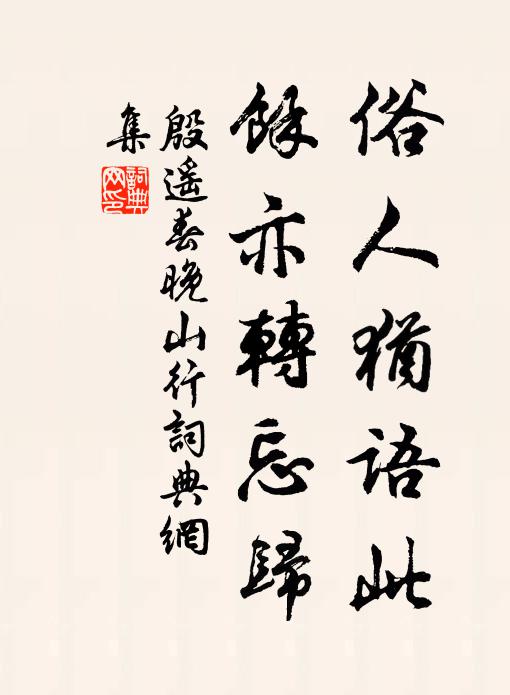 俗人猶語此
餘亦轉忘歸
殷遥春晚山行詞典網
集
詞典网印